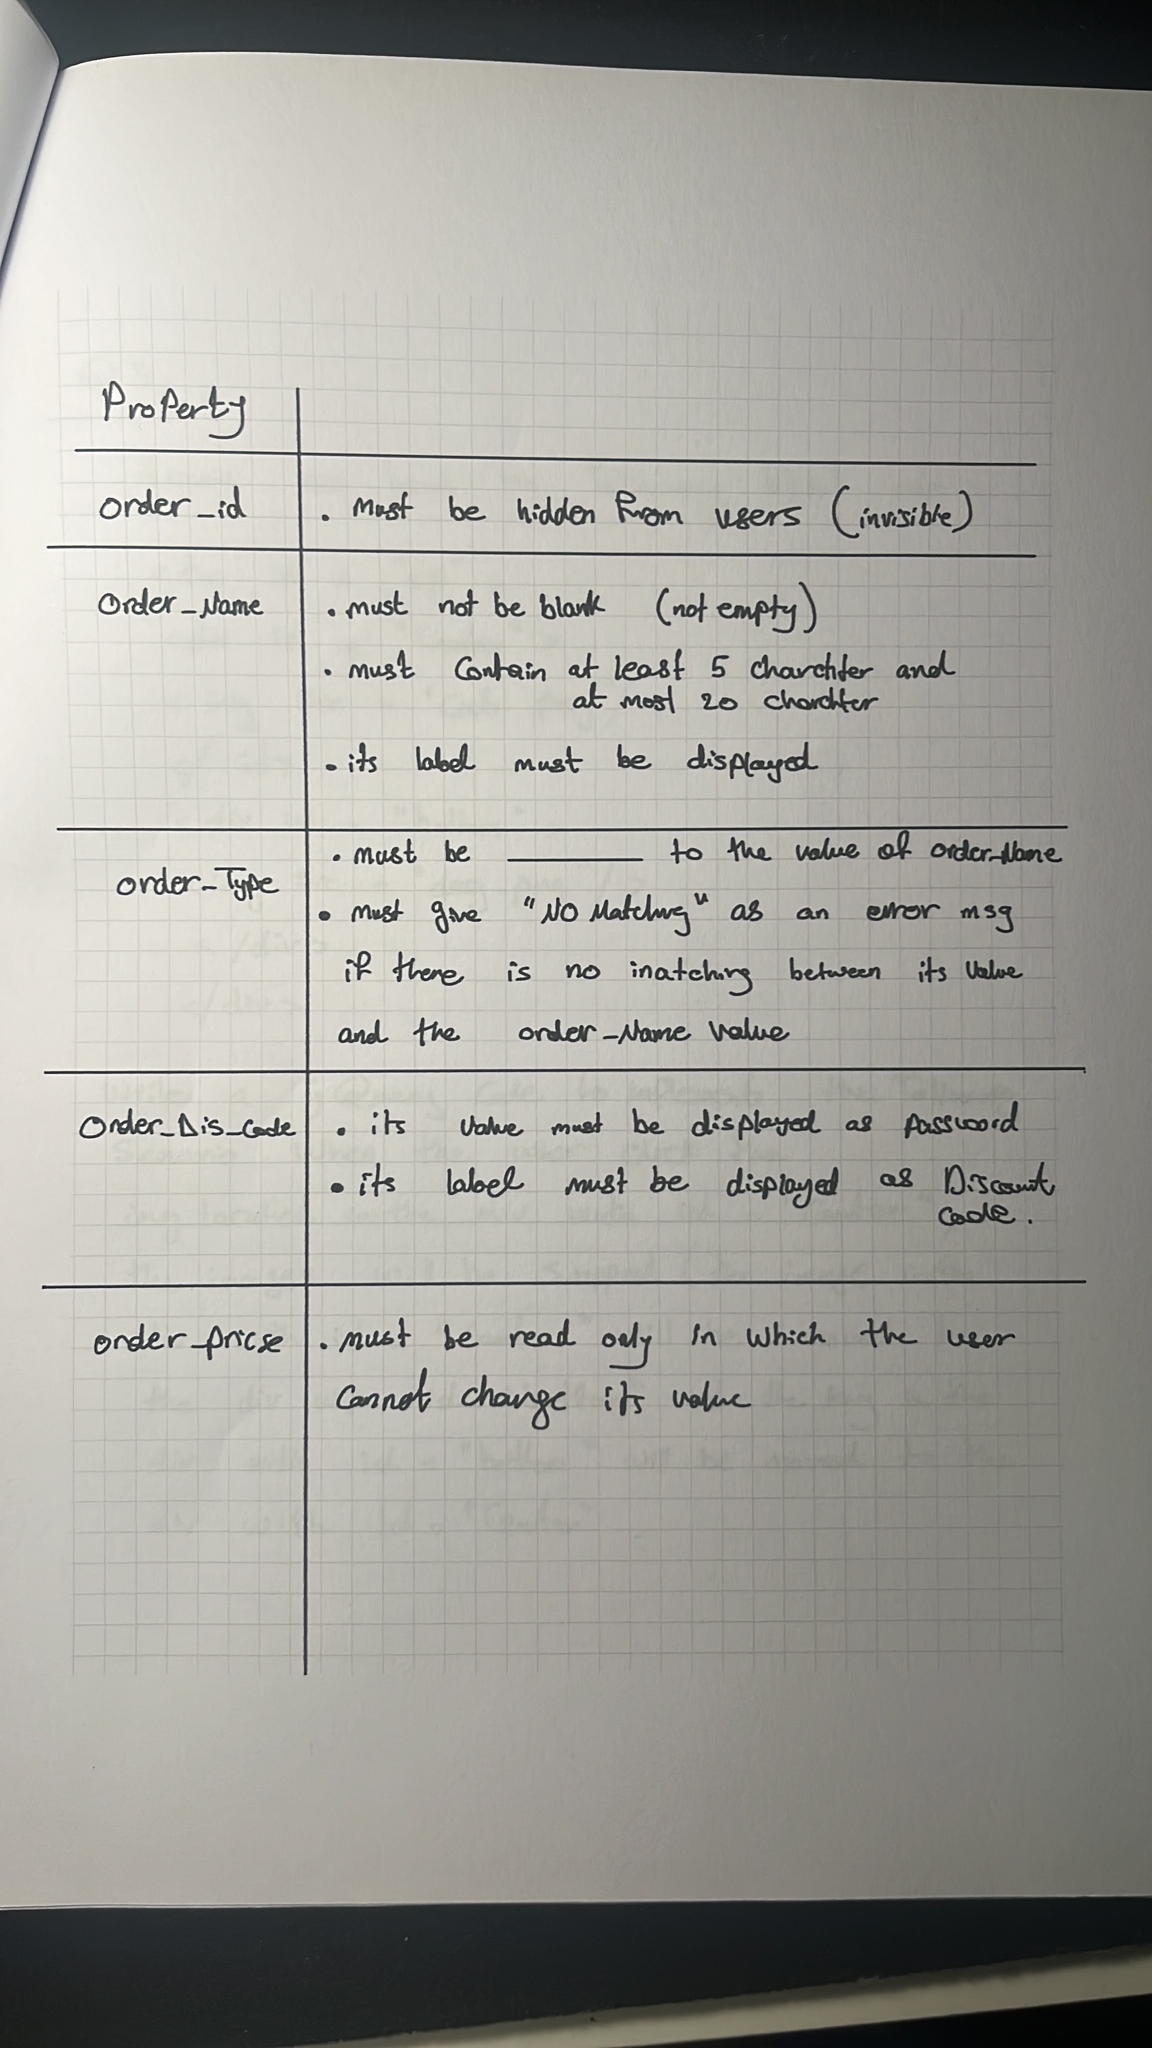 Property
order_id . Must be hidden from users (invisible)
Order_Name . must not be blank (not empty)
. must Contain at least 5 charchter and
at most 20 charchter
. its label must be displayed
. must be ______ to the value of order_Name
order_Type
. must give "NO Matching" as an error msg
if there is no matching between its value
and the order_Name value
Order_Dis_Code . its value must be displayed as password
. its label must be displayed as Discount
Code.
order_pricse . must be read only in which the user
Cannot change its value